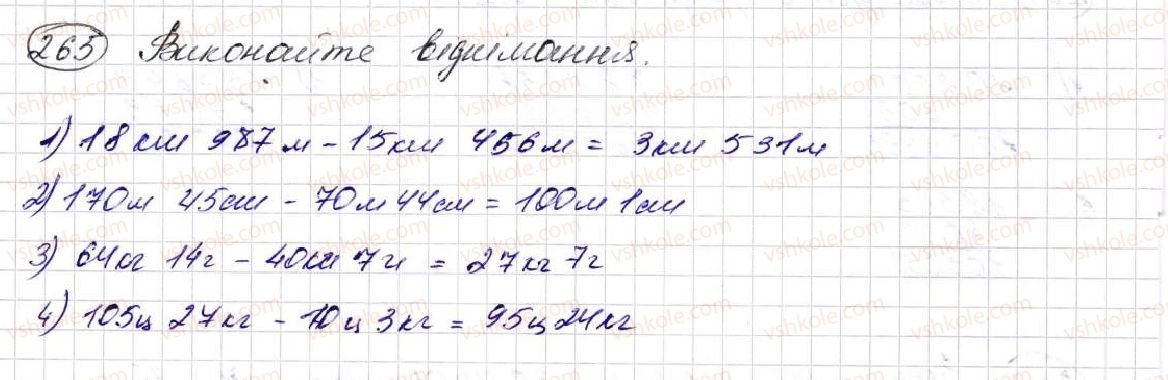 265 Виконайте віднімання.
1) 18 км 987 м - 15 км 456 м = 3 км 531 м
2) 170 м 45 см - 70 м 44 см = 100 м 1 см
3) 64 кг 14 г - 40 кг 7 г = 27 кг 7 г
4) 105 ц 27 кг - 10 ц 3 кг = 95 ц 24 кг